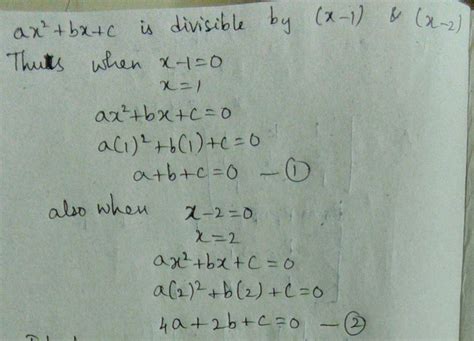 ax² + bx + c is divisible by (x-1) & (x-2)
Thus when x-1=0
x=1
ax²+bx+c=0
a(1)²+b(1)+c=0
a+b+c=0 — ①
also when x-2=0
x=2
ax²+bx+c=0
a(2)²+b(2)+c=0
4a+2b+c=0 — ②